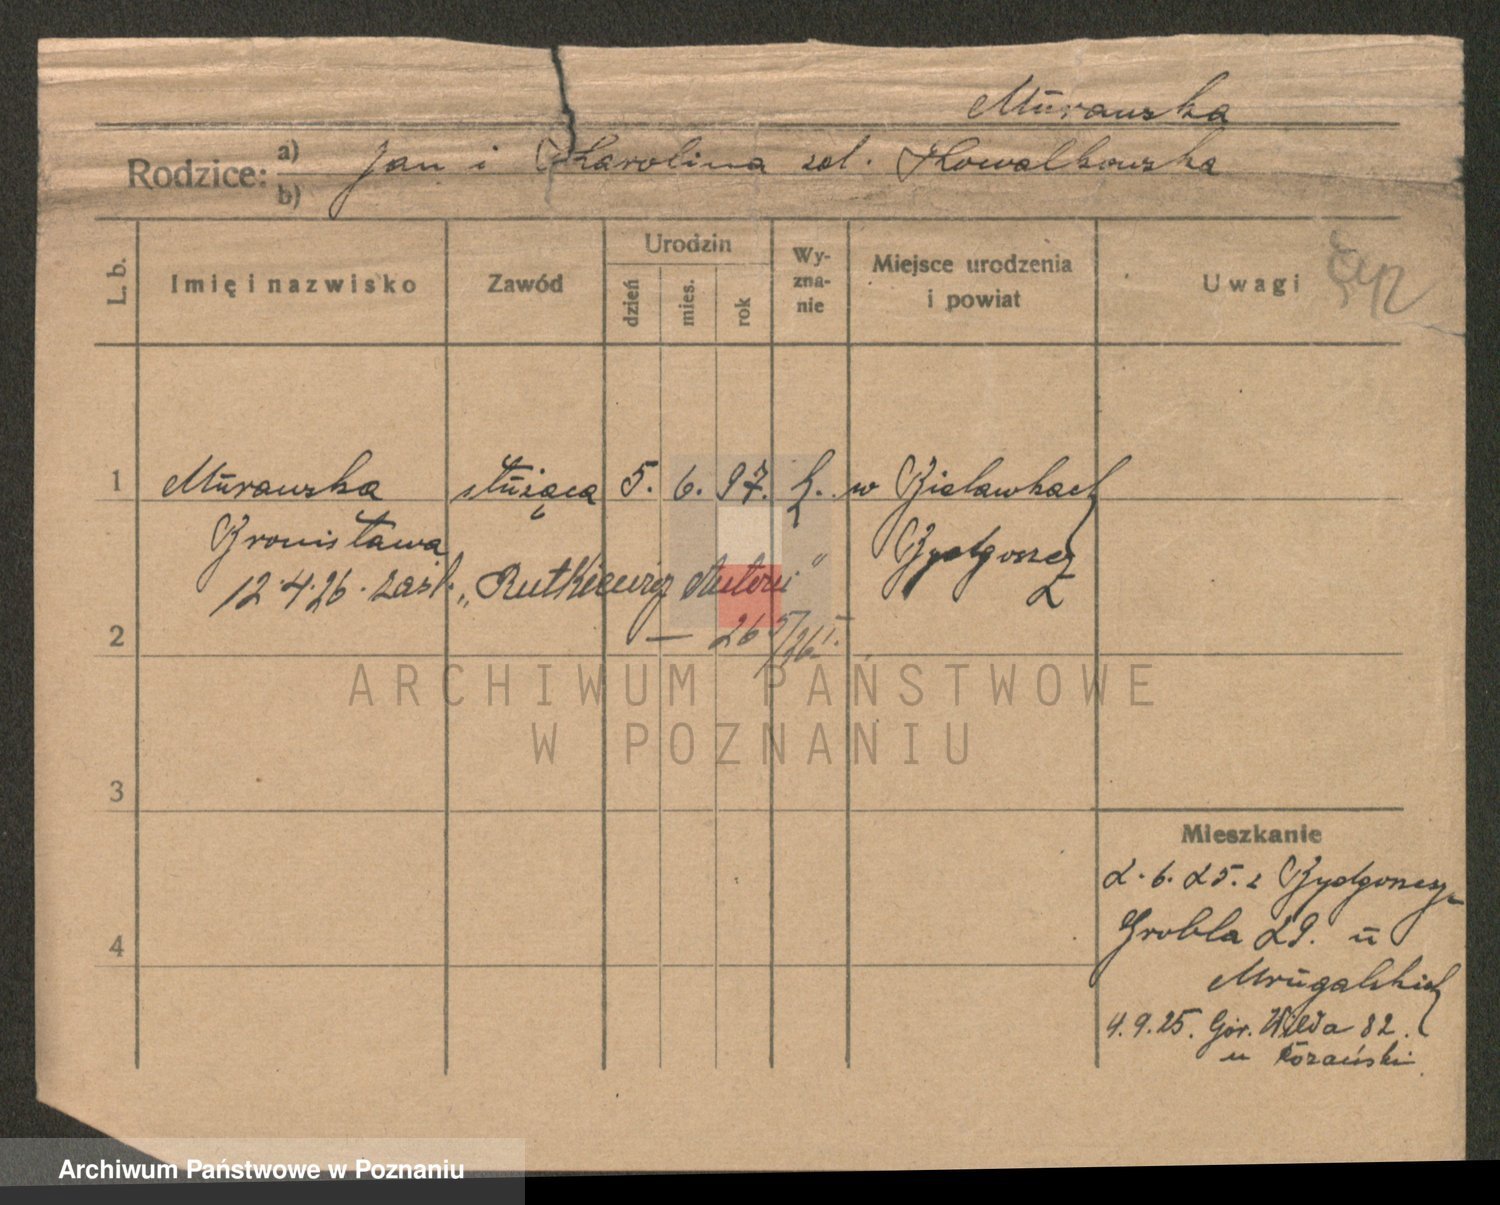 Murawska
Rodzice: a) Jan i Karolina zd. Kowalkowska
b)
L. b. Imię i nazwisko Zawód Urodzin dzień mies. rok Wy-zna-nie Miejsce urodzenia i powiat Uwagi
1 Murawska służąca 5. 6. 97. k. w Bielawkach
Bronisława Bydgoszcz
12.4.26. zaśl. „Rutkiewicz Antoni"
2 — 26
3
Mieszkanie
2. 6. 25. z Bydgoszczy
Grobla 29. u
4 Mrugalskich
4.9.25. Gór. Wilda 82.
u
ARCHIWUM PAŃSTWOWE
W POZNANIU
Archiwum Państwowe w Poznaniu